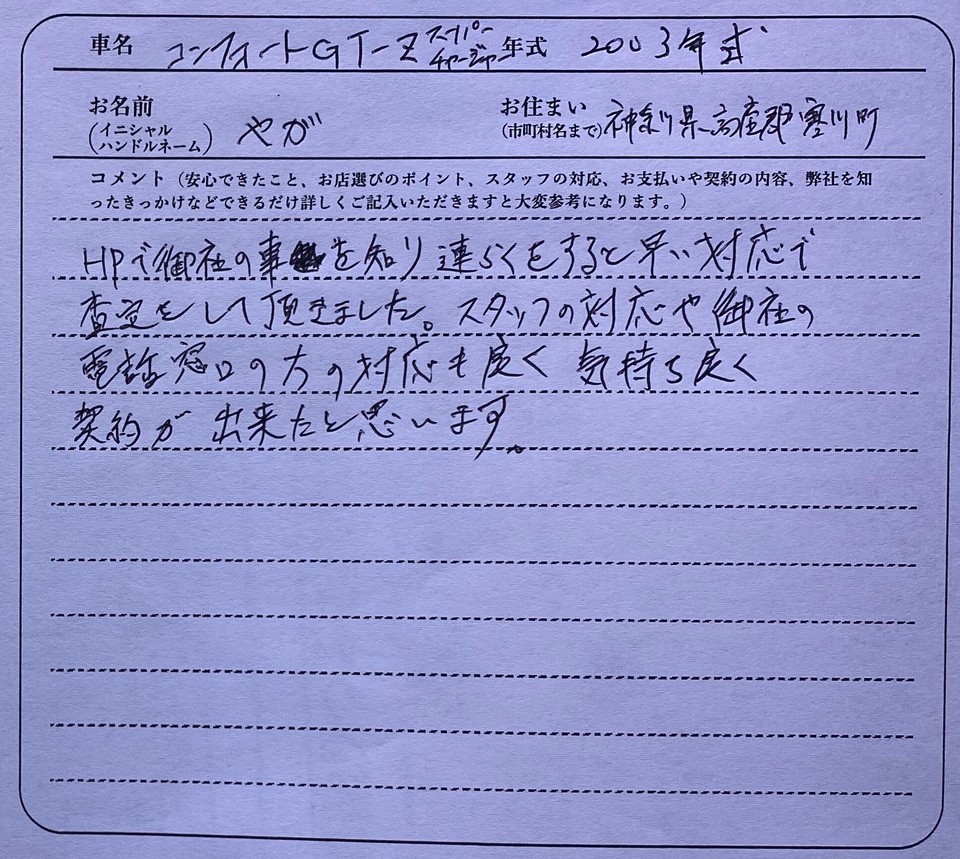 車名 コンフォートGT-Z スーパーチャージャー 年式 2003年式
お名前(イニシャル ハンドルネーム) やが お住まい(市町村名まで) 神奈川県高座郡寒川町
コメント(安心できたこと、お店選びのポイント、スタッフの対応、お支払いや契約の内容、弊社を知
ったきっかけなどできるだけ詳しくご記入いただきますと大変参考になります。)
HPで御社の事を知り連らくをすると早い対応で
査定をして頂きました。スタッフの対応や御社の
電話窓口の方の対応も良く 気持ち良く
契約が出来たと思います。